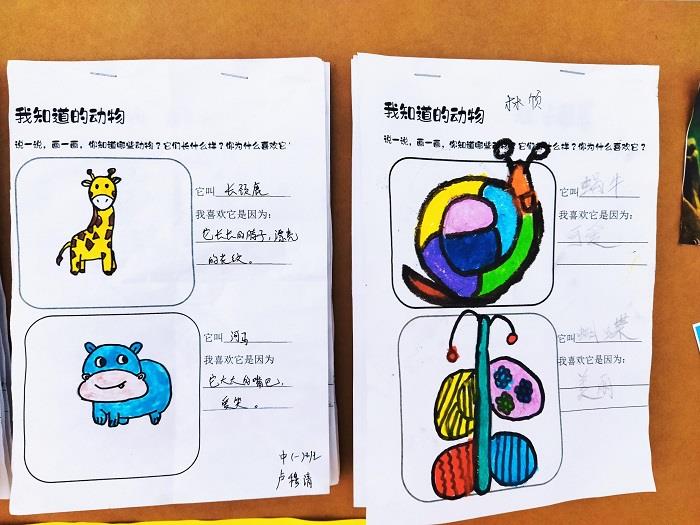 我知道的动物
说一说，画一画，你知道哪些动物？它们长什么样？你为什么喜欢它？
它叫 长颈鹿
我喜欢它是因为：
它长长的脖子，漂亮
的花纹。
它叫 河马
我喜欢它是因为
它大大的嘴巴，
爱笑。
中(一)
卢穆清
我知道的动物
说一说，画一画，你知道哪些动物？它们长什么样？你为什么喜欢它？
它叫 蜗牛
我喜欢它是因为：
可爱
它叫 蝴蝶
我喜欢它是因为：
美丽